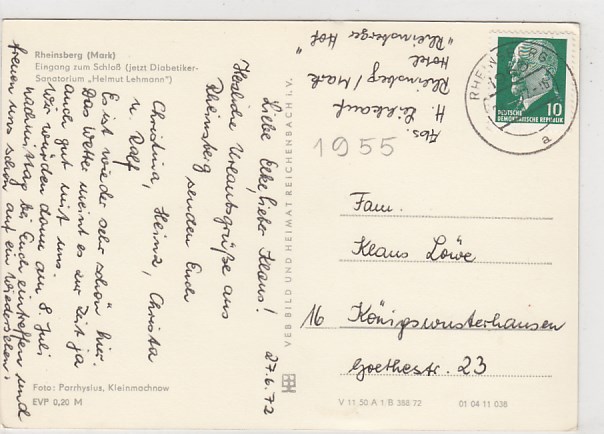 Rheinsberg (Mark)
Eingang zum Schloß (jetzt Diabetiker-
Sanatorium „Helmut Lehmann")
27.6.72
Liebe Elke, lieber Klaus!
Herzliche Urlaubsgrüße aus
Rheinsberg
senden Euch
Christina, Heinz, Christa
u. Ralf
Es ist wieder sehr schön hier.
Das Wetter meint es zur Zeit ja
auch gut mit uns.
Wir würden dann am 8. Juli
nachmittag bei Euch eintreffen und
freuen uns schon auf ein Wiedersehen!
Foto: Parrhysius, Kleinmachnow
EVP 0,20 M
VEB BILD UND HEIMAT REICHENBACH i. V.
Abs.
H.
Rheinsberg/Mark
Hotel
"Rheinsberger Hof"
10
DEUTSCHE
DEMOKRATISCHE REPUBLIK
a
1955
Fam.
Klaus Löwe
16 Königswusterhausen
Goethestr. 23
V 11 50 A 1 B 388 72
01 04 11 038